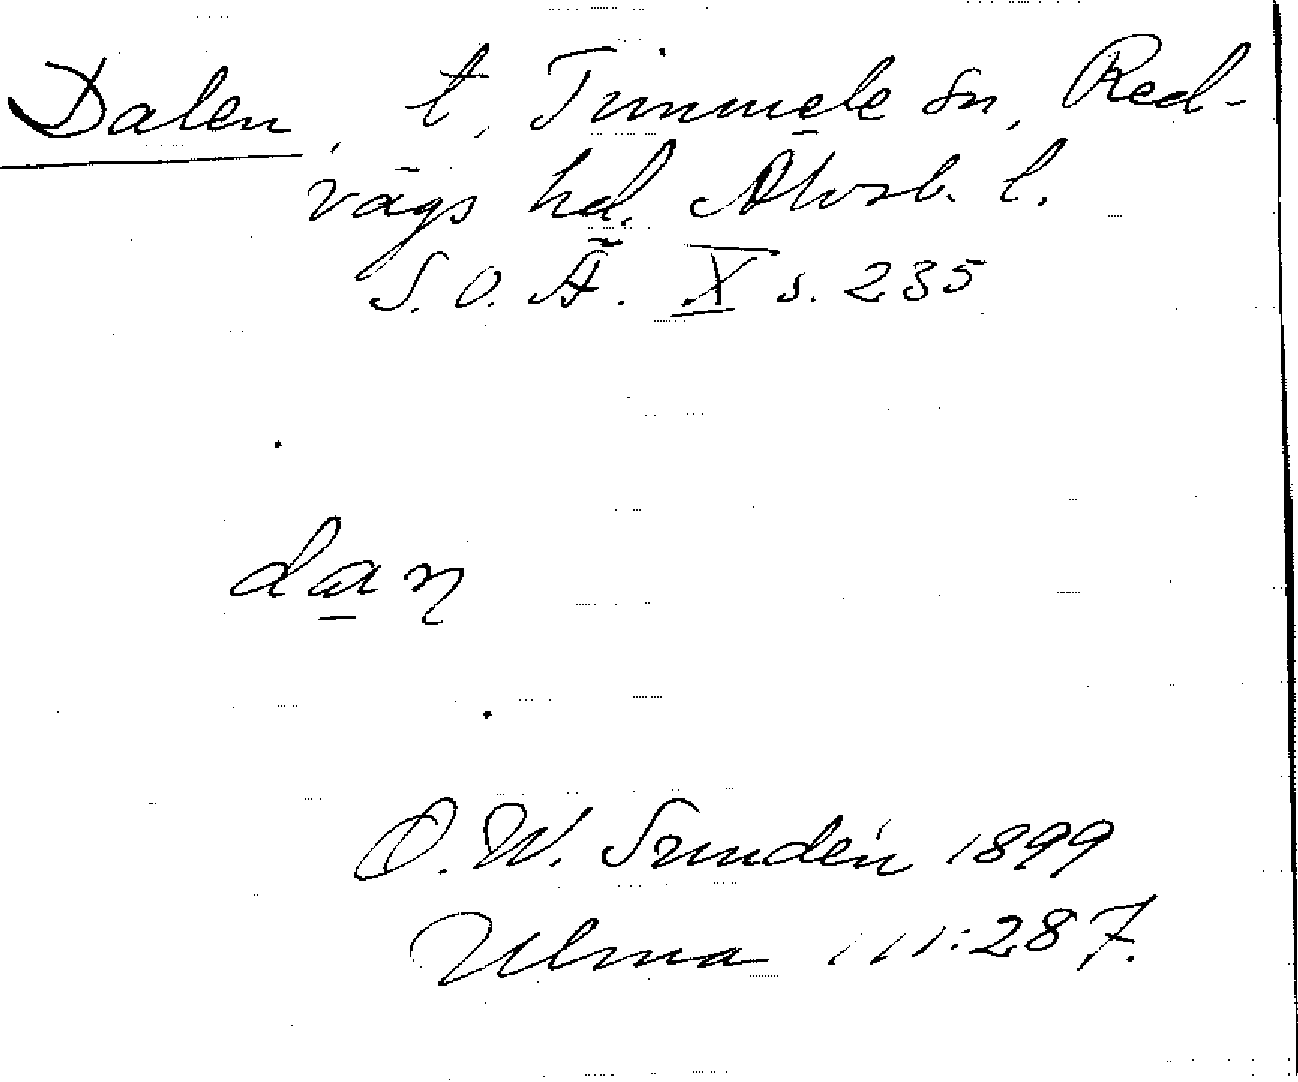 Dalen, t, Timmele sn, Red-
vägs hd. Älvsb. l.
S. O. Ä. X s. 235
dan
O. W. Sundén 1899
Ulma 111:287.